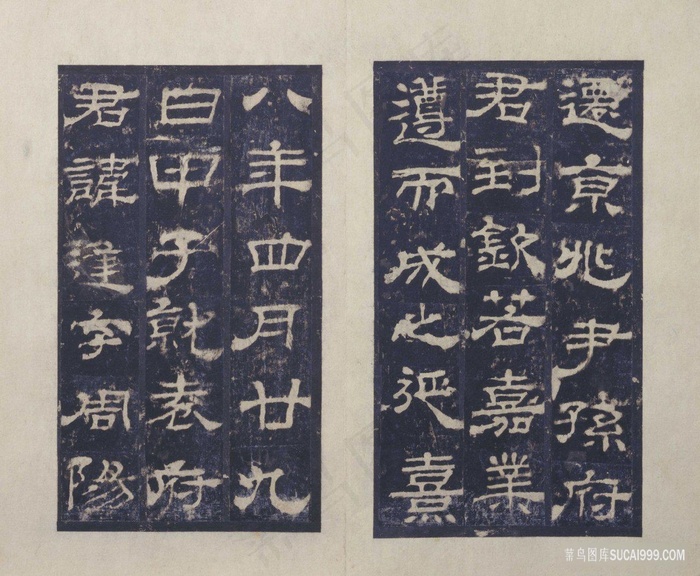 遷京兆尹孫府
君到欽若嘉業
遵而成之延熹
八年四月廿九
日甲子就袁府
君諱逢字周陽
菜鸟图库SUCAI999.COM